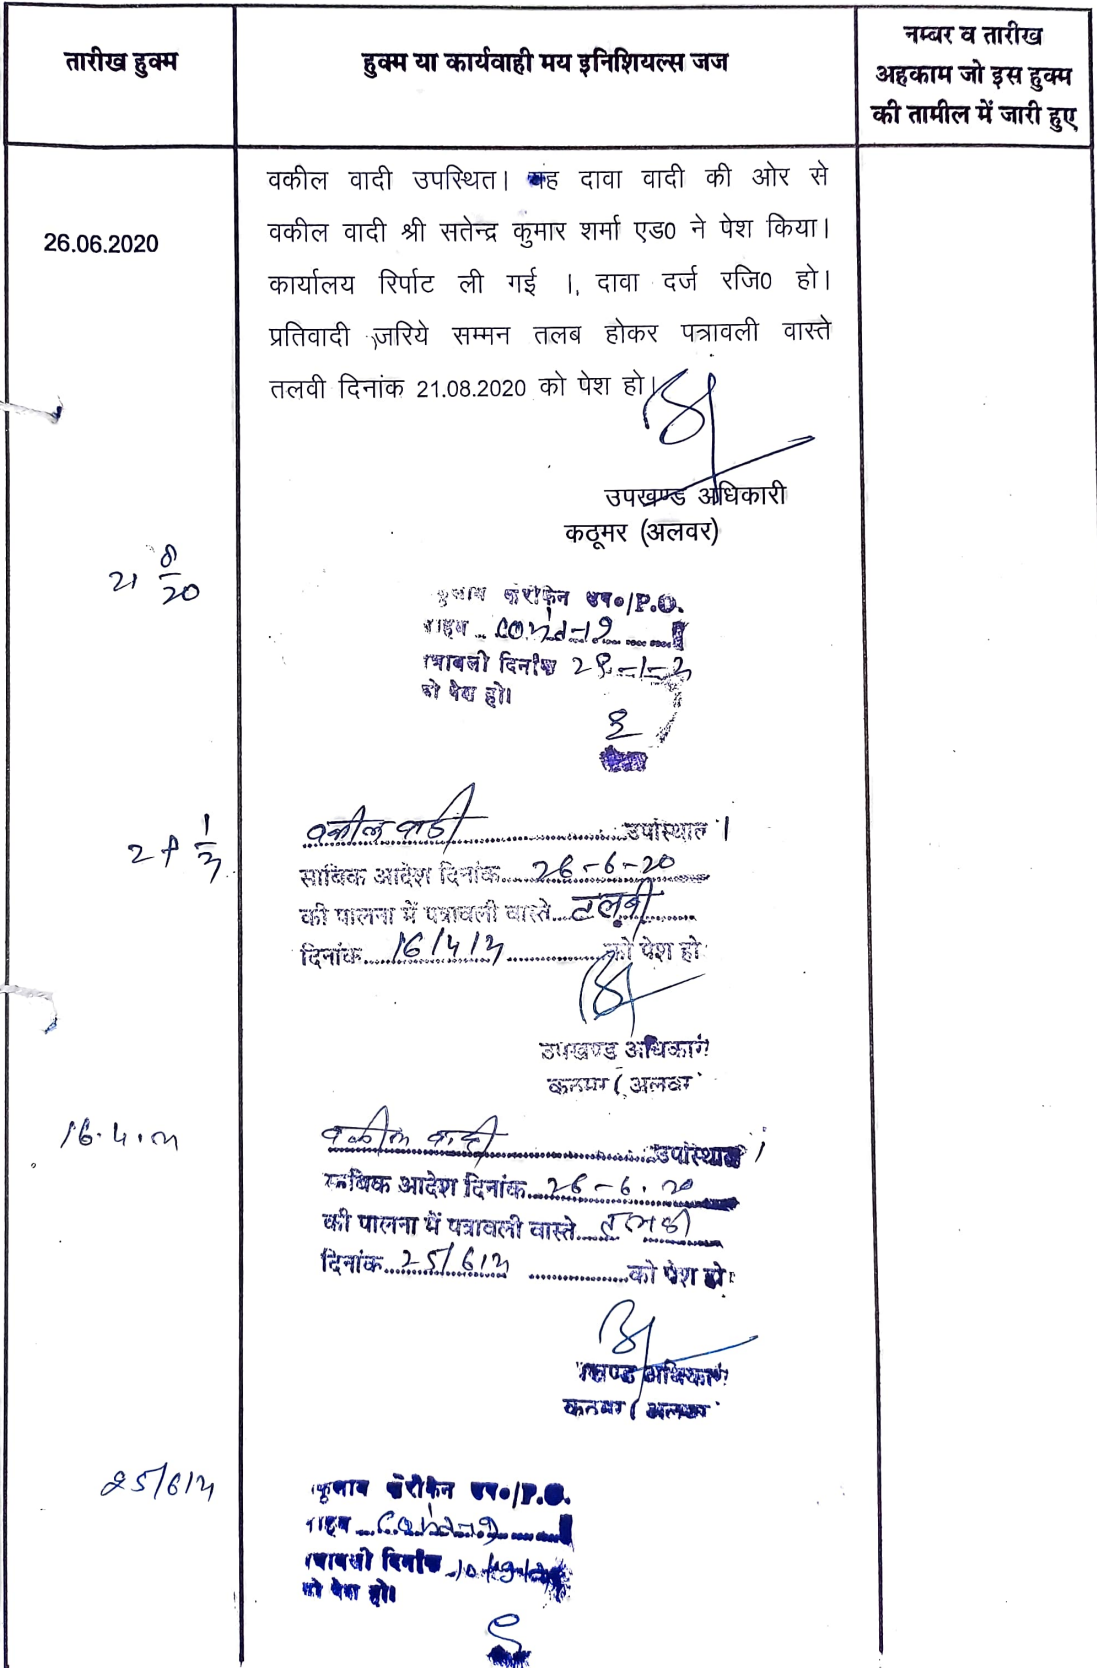 तारीख हुक्म
हुक्म या कार्यवाही मय इनिशियल्स जज
नम्बर व तारीख
अहकाम जो इस हुक्म
की तामील में जारी हुए
26.06.2020
वकील वादी उपस्थित। यह दावा वादी की ओर से
वकील वादी श्री सतेन्द्र कुमार शर्मा एड0 ने पेश किया।
कार्यालय रिर्पाट ली गई ।, दावा दर्ज रजि0 हो।
प्रतिवादी जरिये सम्मन तलब होकर पत्रावली वास्ते
तलवी दिनांक 21.08.2020 को पेश हो।
उपखण्ड अधिकारी
कठूमर (अलवर)
21 8/20
P.O.
Covid-19
दिनांक 28-1-21
को पेश हो।
28 1/21
वकील वादी उपस्थित ।
साबिक आदेश दिनांक 26-6-20
की पालना में पत्रावली वास्ते तलवी
दिनांक 16/4/21 को पेश हो
उपखण्ड अधिकारी
कठूमर (अलवर
16.4.21
वकील वादी उपस्थित ।
साबिक आदेश दिनांक 26-6.20
की पालना में पत्रावली वास्ते तलवी
दिनांक 25/6/21 को पेश हो
खण्ड अधिकारी
कठूमर (अलवर
25/6/21
P.O.
Covid-19
दिनांक
को पेश हो।